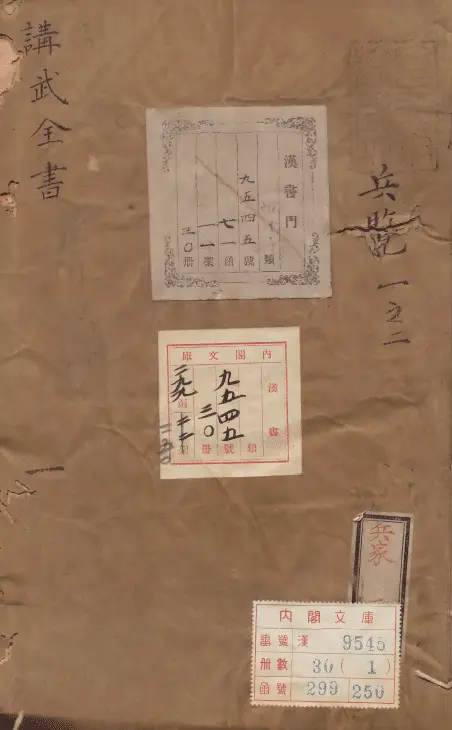 兵覽 一之二
講武全書
一
漢書門
類
九五四五號
七一函
一一架
三〇冊
內閣文庫
漢書
九五四五號
三〇冊
二九九函
兵家
內閣文庫
番號 漢 9545
冊數 30 ( 1 )
函號 299 250